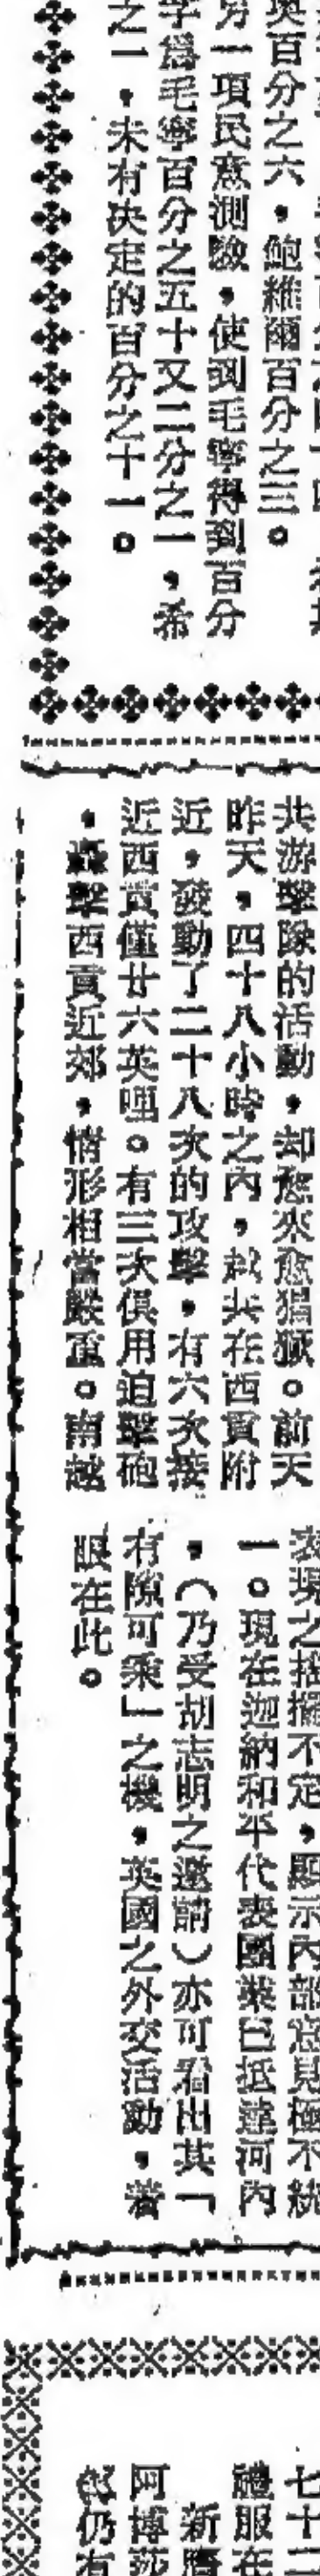 奧百分之六，鮑維爾百分之三。
另一項民意測驗，使到毛寧得到百分
字爲毛寧百分之五十又二分之一，希
之一，未有决定的百分之十一。
共游擊隊的活動，却愈來愈猖獗。前天
昨天，四十八小時之內，越共在西貢附
近，發動了二十八次的攻擊，有六次接
近西貢僅廿六英哩。有三次俱用迫擊砲
，轟擊西貢近郊，情形相當嚴重。南越
表現之搖擺不定，顯示內部意見極不統
一。現在迦納和平代表團業已抵達河內
，（乃受胡志明之邀請）亦可看出其「
有隙可乘」之機，英國之外交活動，着
眼在此。
七十二
禮服在
新
阿博莎
仍有